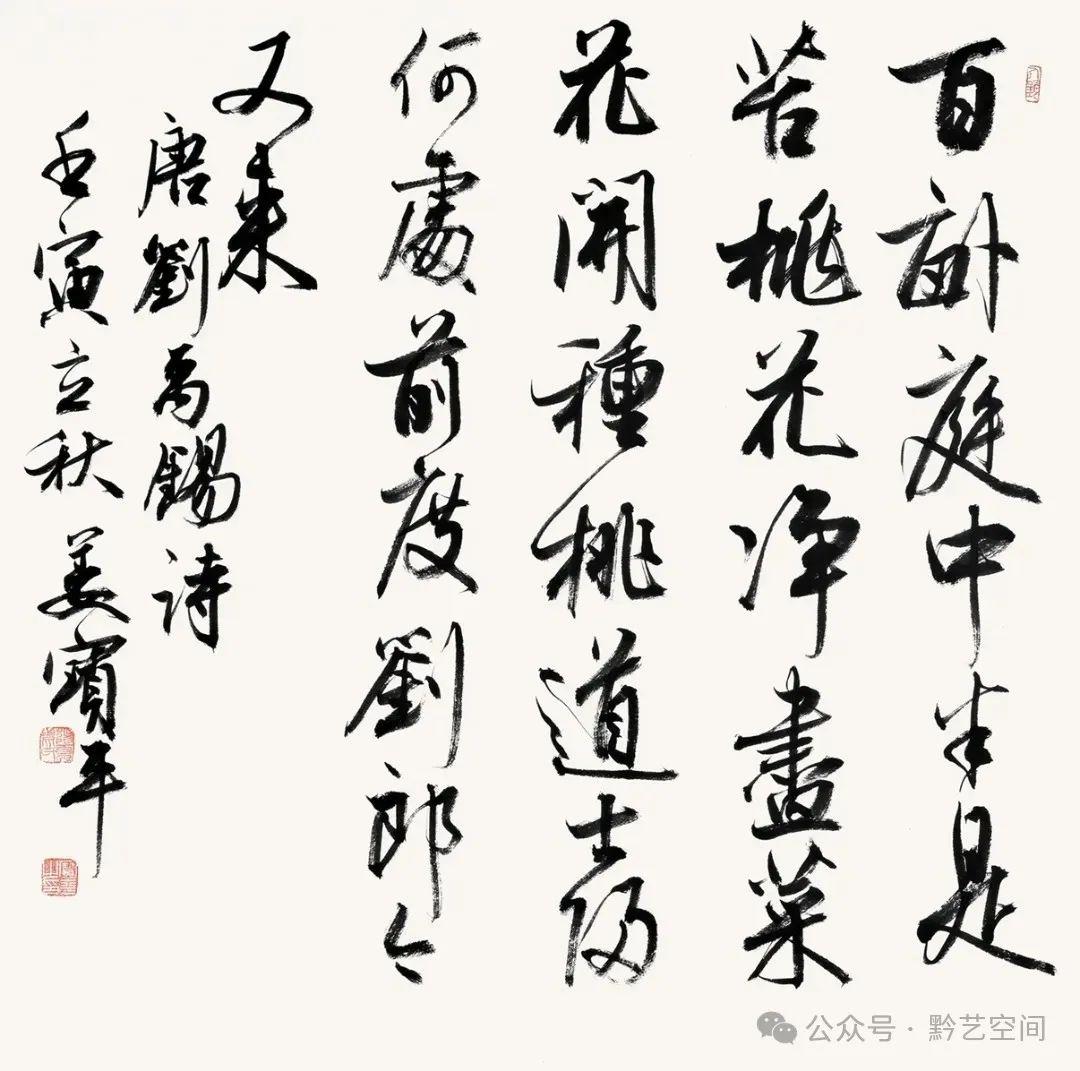 百畝庭中半是
苔桃花净盡菜
花開種桃道士歸
何處前度劉郎今
又来
唐劉禹錫詩
壬寅立秋 姜寶平
公众号 · 黔艺空间